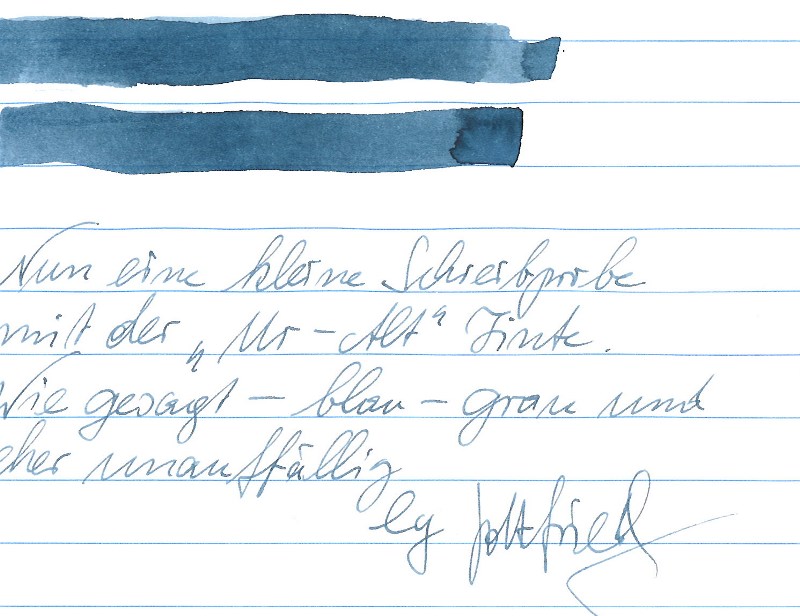 Nun eine kleine Schreibprobe
mit der „Ur-Alt" Tinte.
Wie gesagt - blau-grau und
eher unauffällig
lg Gottfried